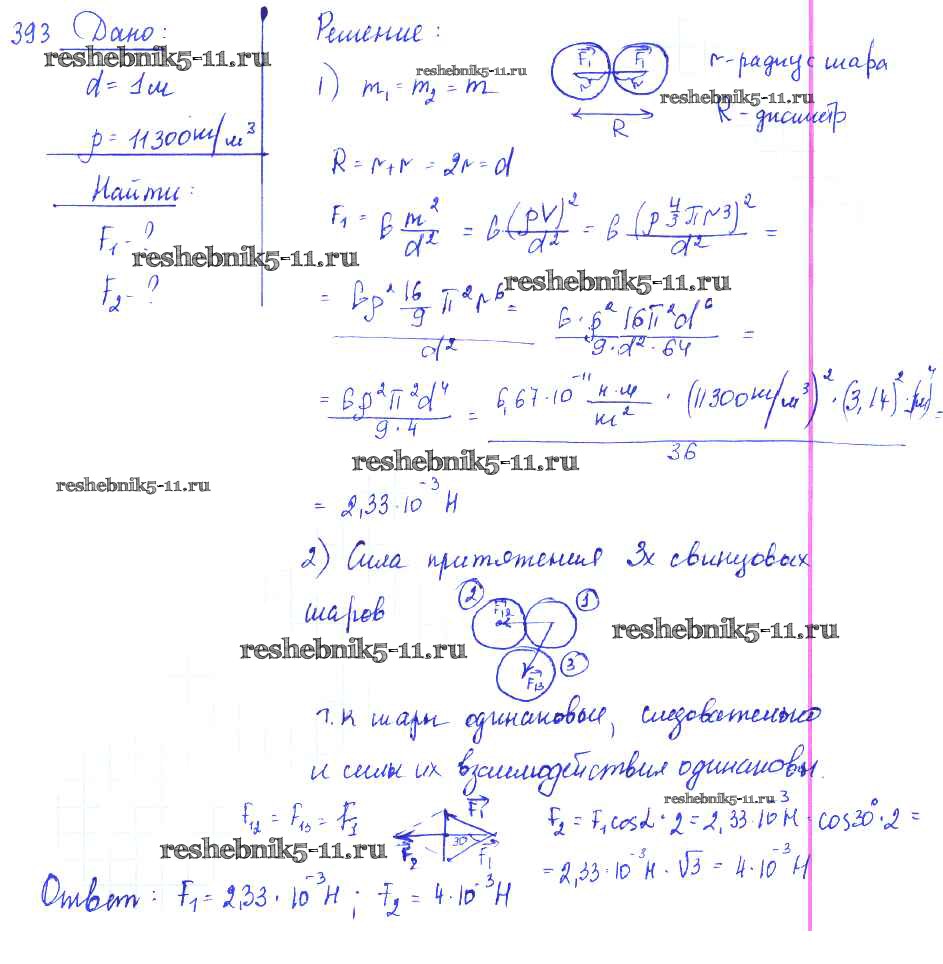 393 Дано:
reshebnik5-11.ru
d = 1 м
ρ = 11300 кг/м³
Найти:
F₁ - ?
reshebnik5-11.ru
F₂ - ?
Решение:
1) m₁ = m₂ = m
reshebnik5-11.ru
F₁ F₁
r r
R
r - радиус шара
reshebnik5-11.ru
R - диаметр
R = r + r = 2r = d
F₁ = G m²/d² = G (ρV)²/d² = G (ρ 4/3 π r³)²/d² =
reshebnik5-11.ru
= Gρ² 16/9 π² r⁶ / d² = G·ρ² 16π²d⁶ / 9·d²·64 =
= Gρ²π²d⁴ / 9·4 = 6,67·10⁻¹¹ н·м/кг² · (11300 кг/м³)² · (3,14)² · (1м)⁴ / 36 =
reshebnik5-11.ru
reshebnik5-11.ru
= 2,33·10⁻³ Н
2) Сила притяжения 3х свинцовых
шаров
2 F₁₂ 1
reshebnik5-11.ru
reshebnik5-11.ru
3 F₁₃
т.к шары одинаковые, следовательно
и силы их взаимодействия одинаковы.
reshebnik5-11.ru
F₁₂ = F₁₃ = F₃
F₁ 30° F₂ F₁
reshebnik5-11.ru
F₂ = F₁cosα·2 = 2,33·10⁻³Н·cos30°·2 =
= 2,33·10⁻³Н·√3 = 4·10⁻³ Н
Ответ: F₁ = 2,33·10⁻³Н; F₂ = 4·10⁻³Н